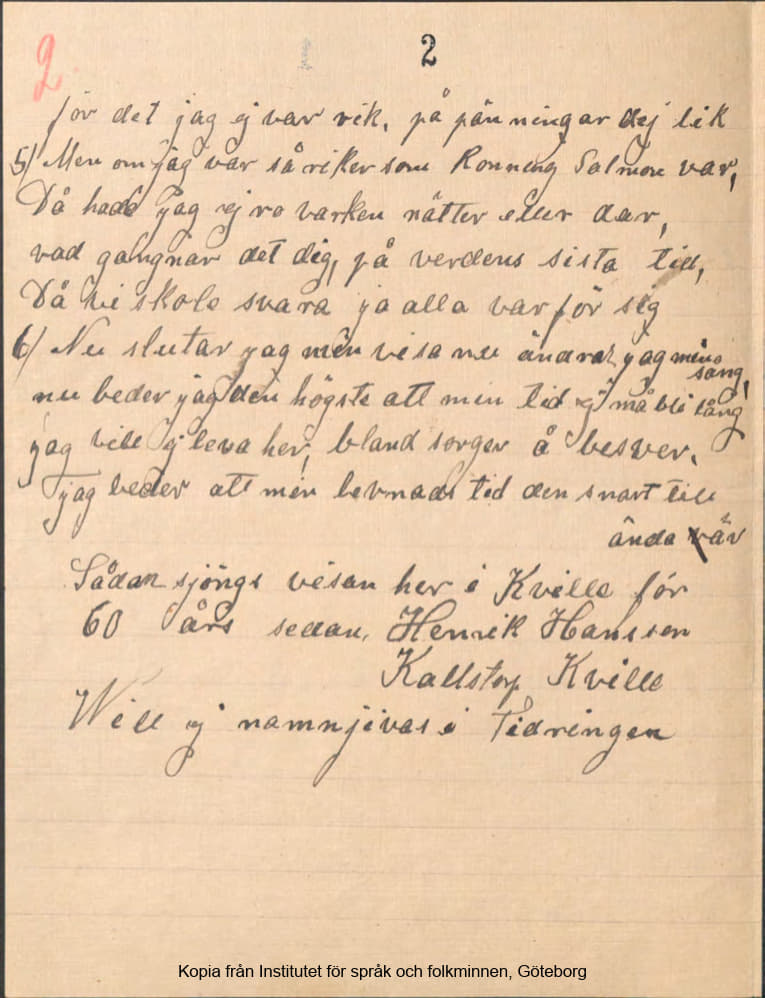 2
2
för det jag ej var rik, på pänningar dej lik
5) Men om jag var så riker som Konning Salmon var,
Då hade jag ej ro varken nätter eller dar,
vad gangnar det dig, på verdens sista tid,
Då vi skole svara ja alla var för sig
6) Nu slutar jag min visa nu ändrar jag min sång,
nu beder jag den högste att min tid ej må bli lång
jag vill ej leva her, bland sorger å besver,
jag beder att min levnads tid den snart till
ända är
Sådan sjöngs visan her i Kville för
60 års sedan, Henrik Hanssen
Kallstorp Kville
Will ej namnjivas i Tidningen
Kopia från Institutet för språk och folkminnen, Göteborg